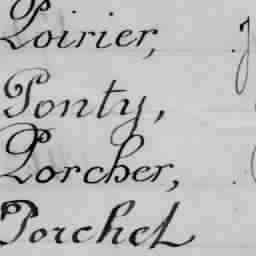 Poirier,
Ponty,
Porcher,
Porchet